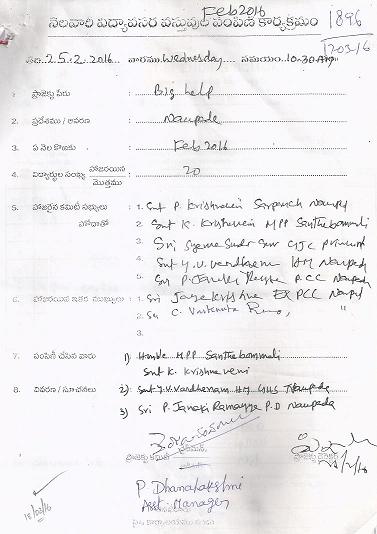 Feb 2016
నెలవారి విద్యావసర వస్తువుల పంపిణి కార్యక్రమం
1896
12/03/16
తేది: 25.2.2016 వారము Wednesday సమయం: 10-30 AM
1. ప్రాజెక్టు పేరు : Big help
2. ప్రదేశము / ఆవరణ : Naupada
3. ఏ నెల కొఱకు : Feb 2016
4. విద్యార్థుల సంఖ్య హాజరయిన / మొత్తము : 20
5. హాజరైన కమిటీ సభ్యులు : 1. Smt P. Krishnaveni Sarpanch Naupada
హోదాతో 2. Smt K. Krishnaveni MPP Santhabommali
3. Sri Syama Sundar
4. Smt Y.V. Vardhanam HM Naupada
5. Sri P. Janaki Ramayya PCC Naupada
6. హాజరయిన ఇతర ముఖ్యులు : 1. Sri Jaya Krishna EX PCC Naupada
2. Sri C. Venkata Rao, "
3.
7. పంపిణీ చేసిన వారు 1) Honble MPP Santhabommali
Smt K. Krishnaveni
8. వివరణ / సూచనలు 2) Smt Y.V. Vardhanam HM GHS Naupada
3) Sri P. Janaki Ramayya P.D Naupada
ప్రాజెక్టు కమిటీ చైర్మన్, ప్రాజెక్టు డైరెక్టర్
P Dhanalakshmi
Asst Manager
12/03/16